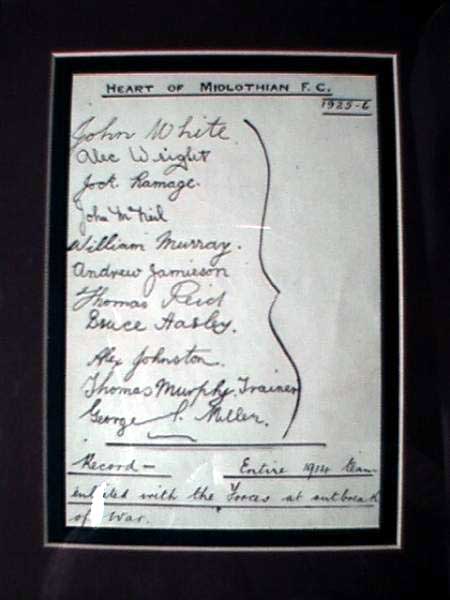 HEART OF MIDLOTHIAN F.C.
1925-6
John White.
Alec Wright
Jock Ramage.
John McNeil
William Murray.
Andrew Jamieson
Thomas Reid
Bruce Hasley.
Alex Johnston.
Thomas Murphy. Trainer
George P. Miller.
Record — Entire 1914 team
enlisted with the Forces at outbreak
of War.